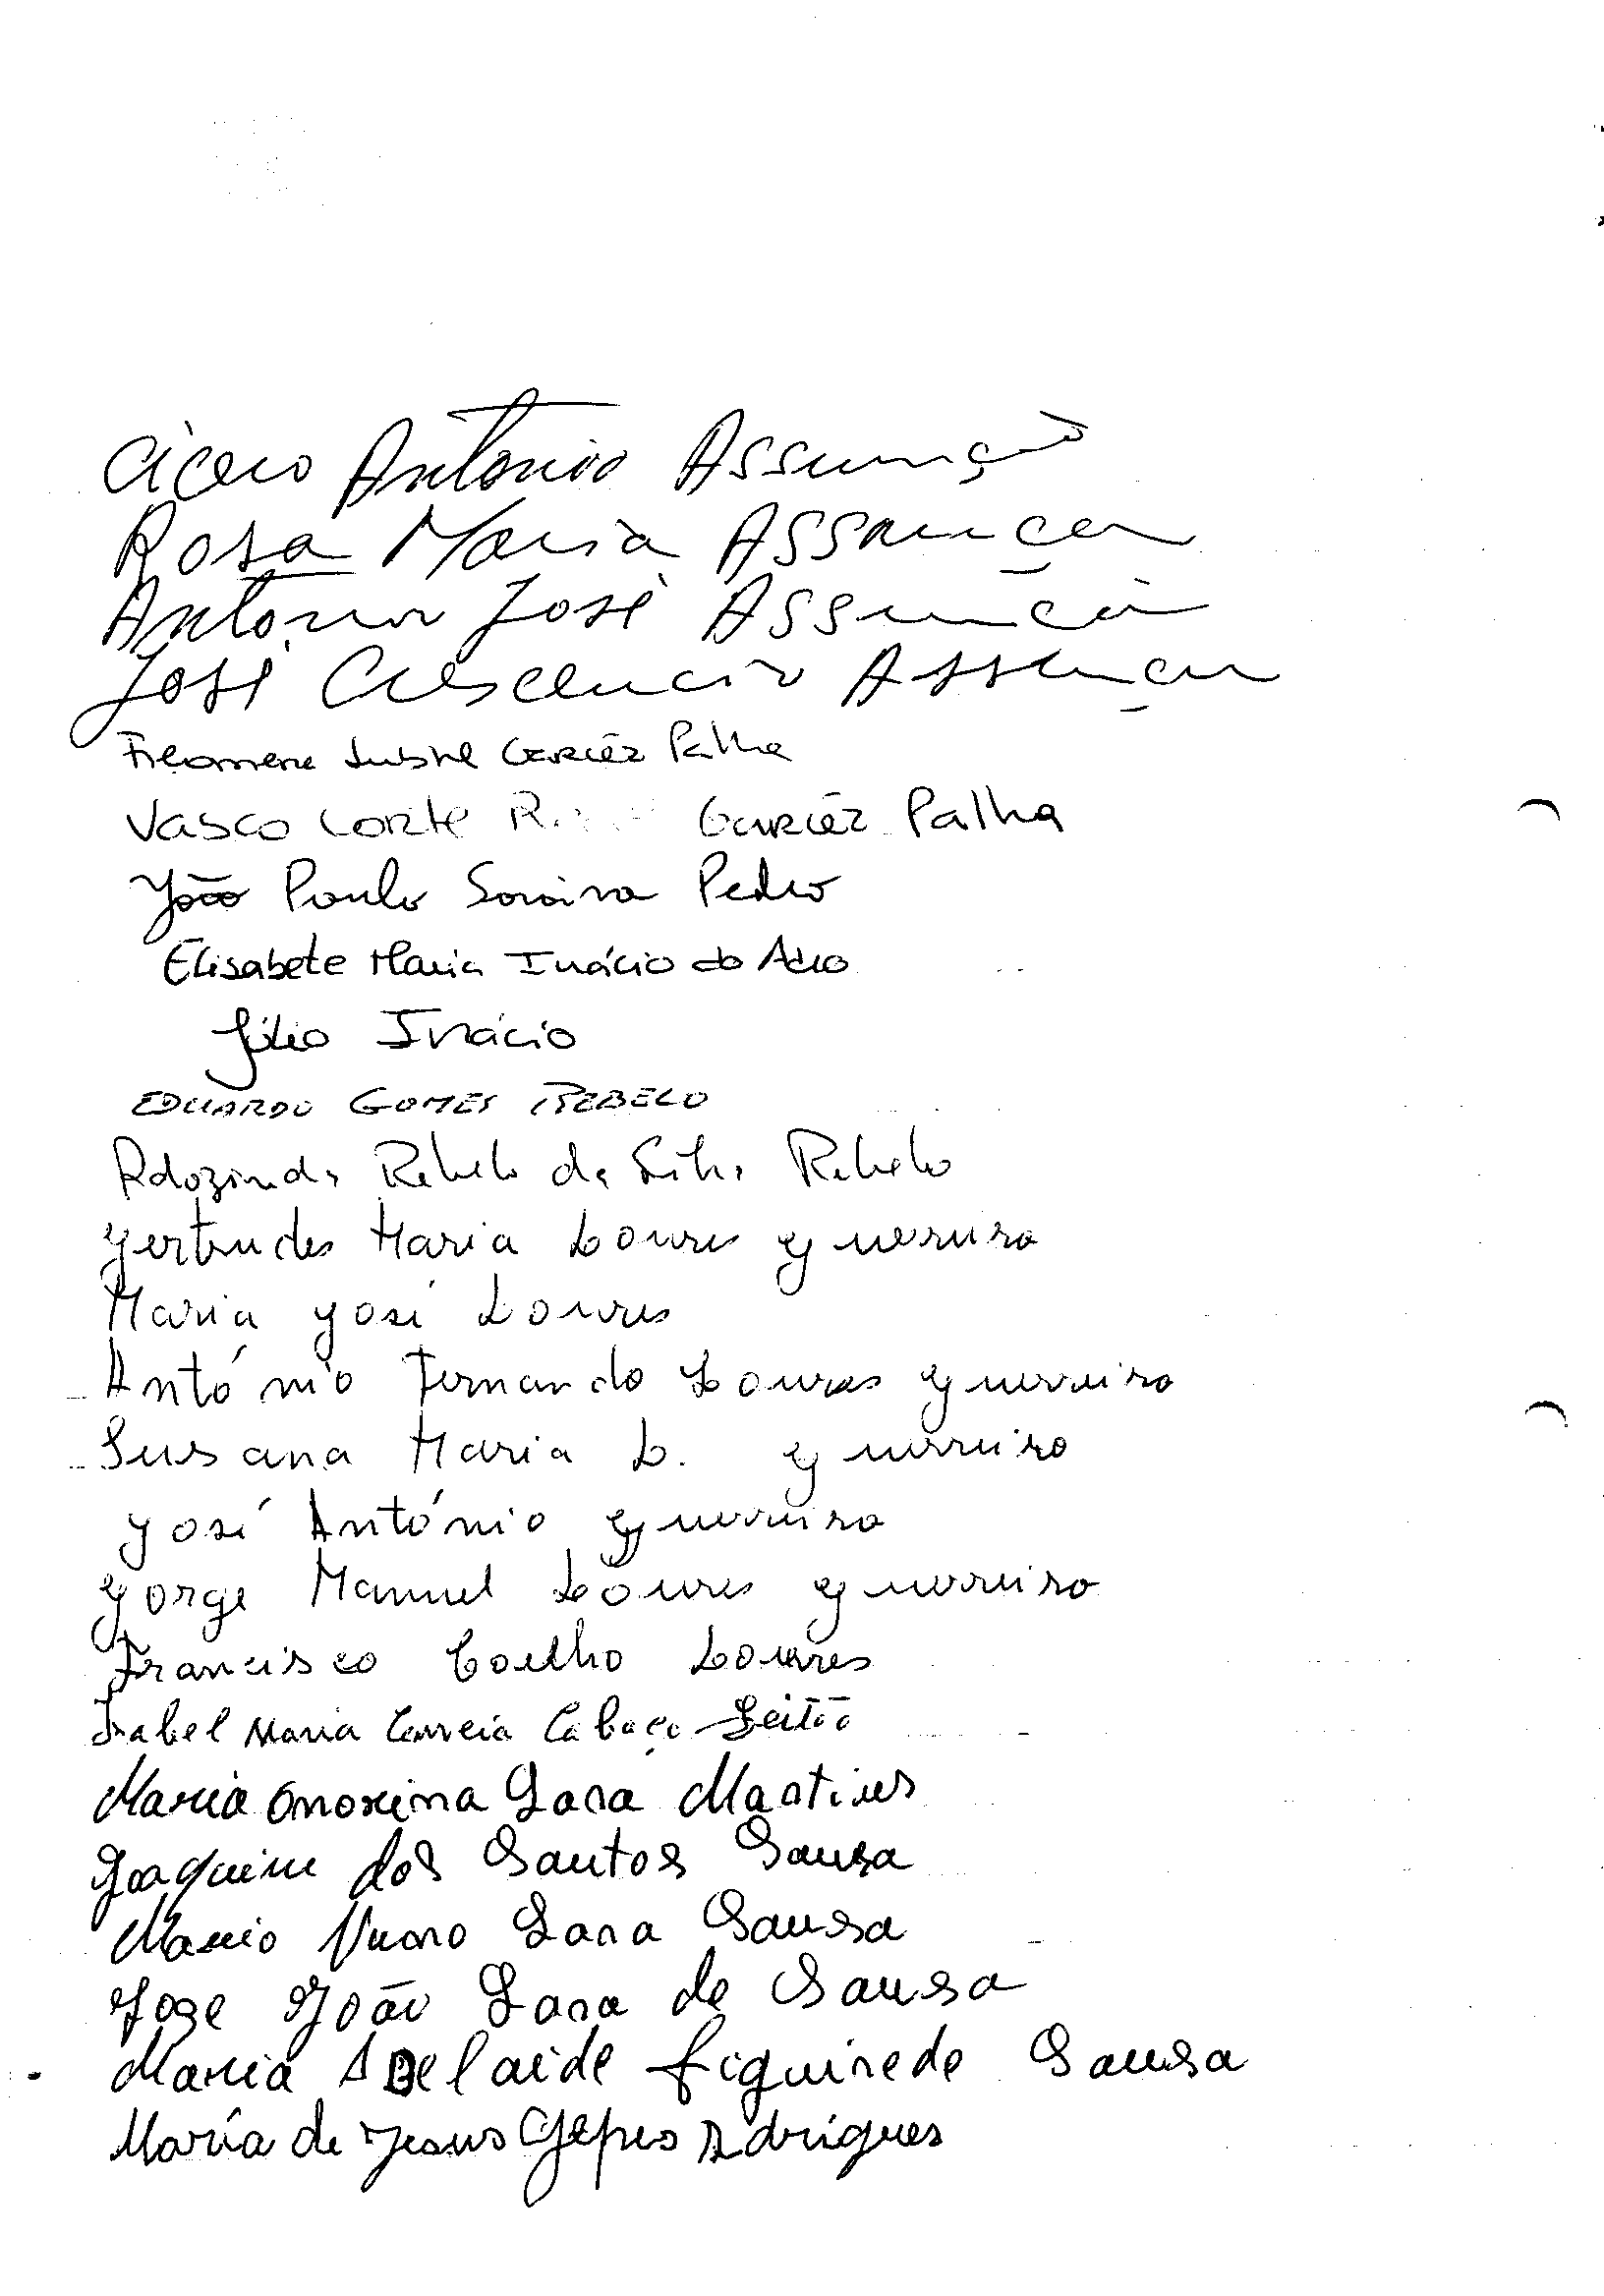 Cícero António Assunção
Rosa Maria Assunção
António José Assunção
José Crescencio Assunção
Filomena Garcêz Palha
Vasco Corte Garcêz Palha
João Paulo Saraiva Pedro
Elisabete Maria Inácio do Adro
Júlio Inácio
EDUARDO GOMES REBELO
Rebelo da Silva Rebelo
Gertrudes Maria Loures Guerreiro
Maria José Loures
António Fernando Loures Guerreiro
Susana Maria L. Guerreiro
José António Guerreiro
Jorge Manuel Loures Guerreiro
Francisco Coelho Loures
Isabel Maria Correia Cabaço Leitão
Maria Onorina Lara Martins
Joaquim dos Santos Sousa
Mario Nuno Lara Sousa
Jose João Lara de Sousa
Maria Adelaide figuirede Sousa
María de Jesus Rodrigues